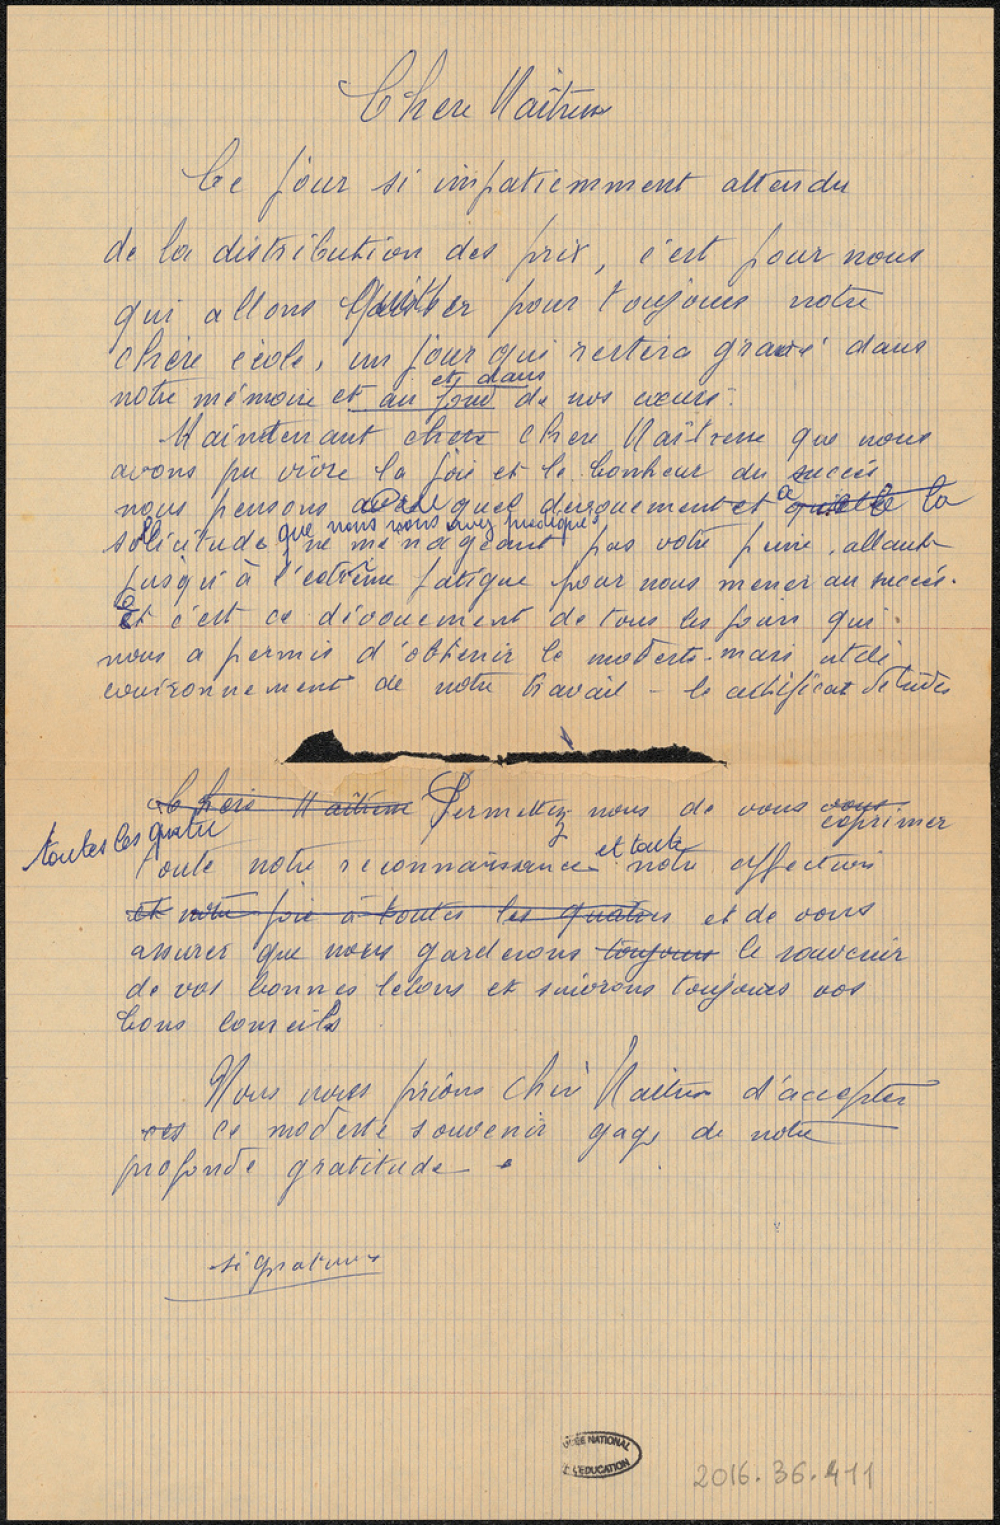 Chere Maîtresse
Ce jour si impatiemment attendu
de la distribution des prix, c'est pour nous
qui allons quitter pour toujours notre
chère école, un jour qui restera gravé dans
et dans
notre mémoire et au fond de nos cœurs.
Maintenant chere Chere Maîtresse que nous
avons pu vivre la joie et le bonheur du succès
nous pensons avec quel devouement et à quelle la
sollicitude que nous vous avez prodigués
ne menageant pas votre peine, allant
jusqu'à l'extrême fatigue pour nous mener au succès.
Et c'est ce dévouement de tous les jours qui
nous a permis d'obtenir le modeste mais utile
couronnement de notre travail - le certificat d'études
Chère Maîtresse Permettez nous de vous vous exprimer
toutes les quatre
toute notre reconnaissance et toute notre affection
et notre joie à toutes les quatres et de vous
assurer que nous garderons toujours le souvenir
de vos bonnes lecons et suivrons toujours vos
bons conseils
Nous vous prions Chère Maitresse d'accepter
ces ce modeste souvenir gage de notre
profonde gratitude.
signatures
MUSÉE NATIONAL
DE L'EDUCATION
2016.36.411